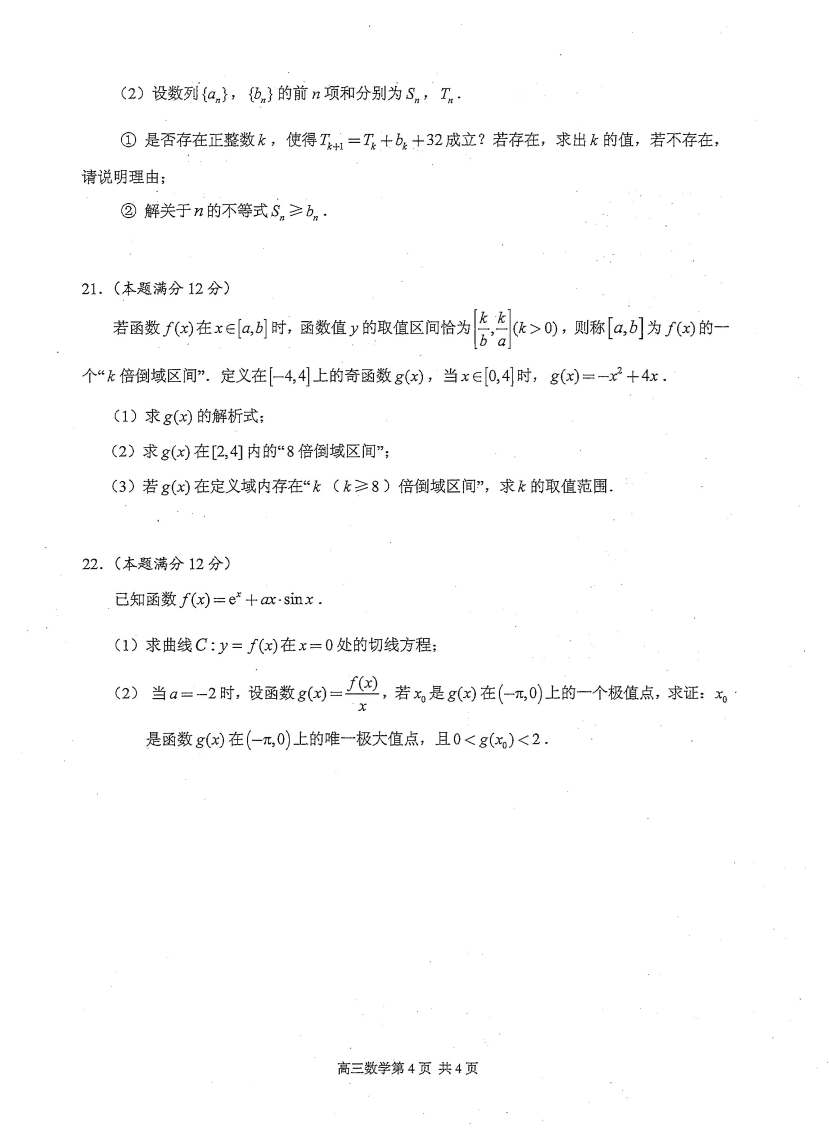 （2）设数列{aₙ}，{bₙ}的前n项和分别为Sₙ，Tₙ．
① 是否存在正整数k，使得Tₖ₊₁＝Tₖ＋bₖ＋32成立？若存在，求出k的值，若不存在，
请说明理由；
② 解关于n的不等式Sₙ≥bₙ．
21．（本题满分12分）
若函数f(x)在x∈[a,b]时，函数值y的取值区间恰为[k/b,k/a](k＞0)，则称[a,b]为f(x)的一
个“k倍倒域区间”．定义在[−4,4]上的奇函数g(x)，当x∈[0,4]时，g(x)＝−x²＋4x．
（1）求g(x)的解析式；
（2）求g(x)在[2,4]内的“8倍倒域区间”；
（3）若g(x)在定义域内存在“k（k≥8）倍倒域区间”，求k的取值范围．
22．（本题满分12分）
已知函数f(x)＝eˣ＋ax·sinx．
（1）求曲线C:y＝f(x)在x＝0处的切线方程；
（2） 当a＝−2时，设函数g(x)＝f(x)/x，若x₀是g(x)在(−π,0)上的一个极值点，求证：x₀
是函数g(x)在(−π,0)上的唯一极大值点，且0＜g(x₀)＜2．
高三数学第4页 共4页